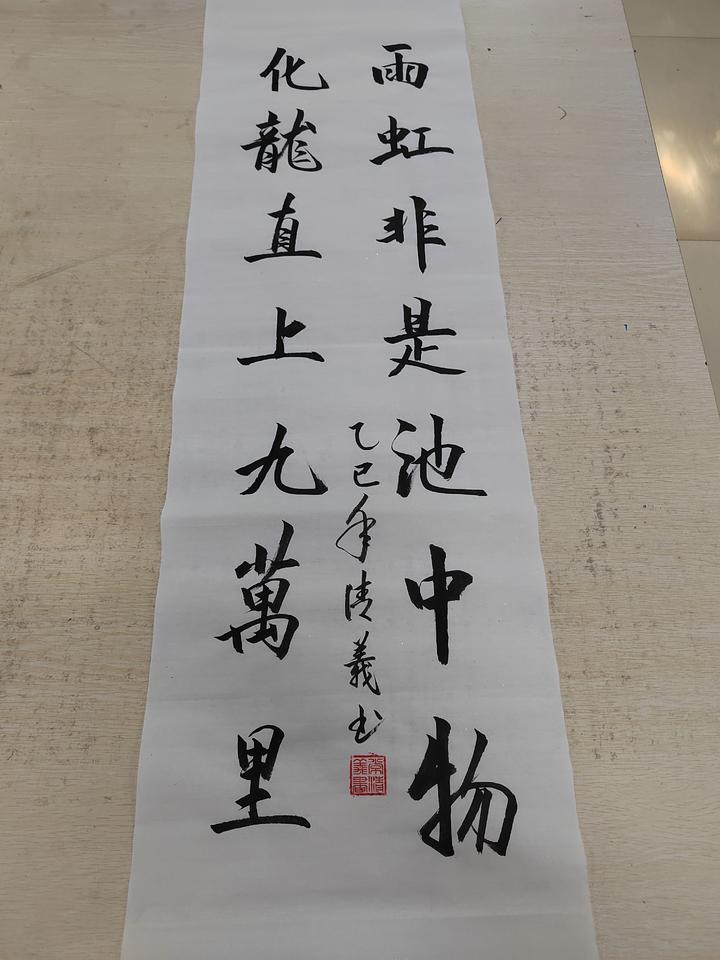 雨虹非是池中物
化龍直上九萬里
乙巳年清義书